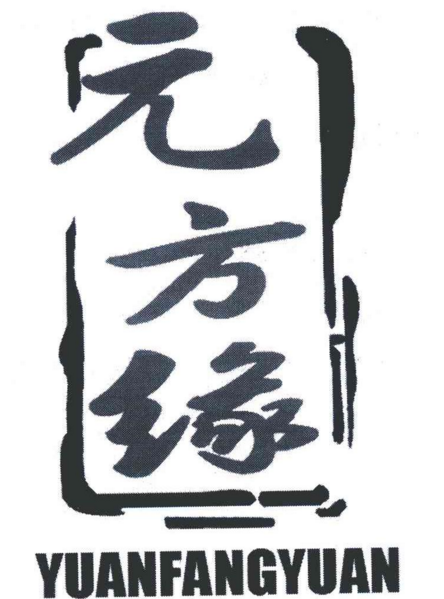 元方缘
YUANFANGYUAN